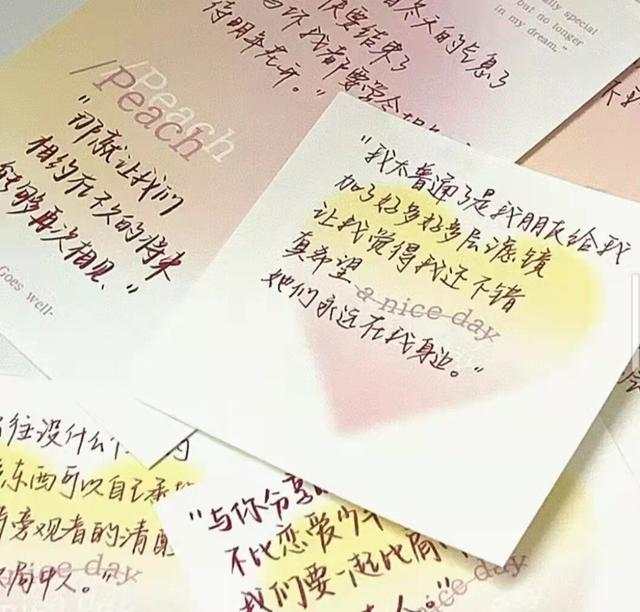 冬天的气息了
快要结束了
待明年花开。"
ally special
but no longer
in my dream."
/Peach
/Peach
"那就让我们
相约在不久的将来
能够再次相见、"
Goes well-
"我太普通了是我朋友给我
加了好多好多层滤镜
让我觉得我还不错
真希望
a nice day
她们永远在我身边。"
往没什么
东西可以自己承
旁观者的清
局中人。"
a nice day
"与你分享
不比恋爱少
我们要一起比肩
nice day